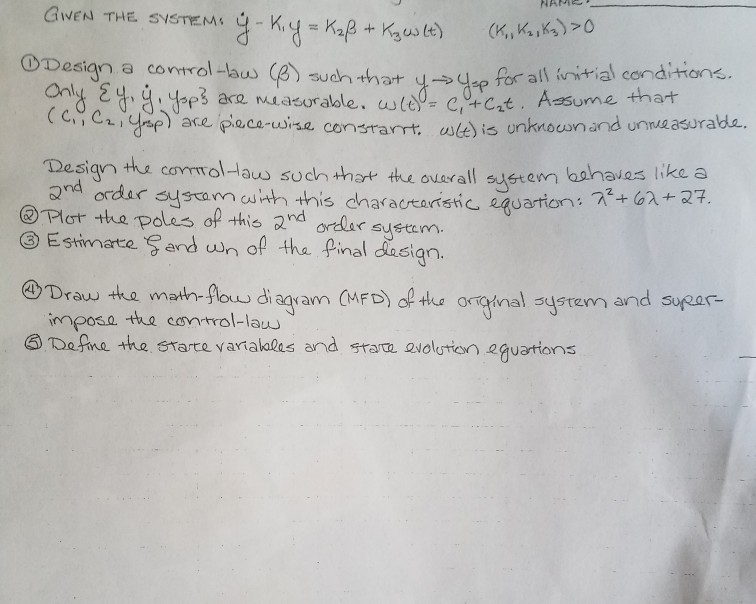 NAME:
GIVEN THE SYSTEM: ẏ - K₁y = K₂β + K₃ω(t) (K₁, K₂, K₃) > 0
① Design a control-law (β) such that y → ysp for all initial conditions.
Only {y, ẏ, ysp} are measurable. ω(t) = C₁ + C₂t. Assume that
(C₁, C₂, ysp) are piece-wise constant. ω(t) is unknown and unmeasurable.
Design the control-law such that the overall system behaves like a
2nd order system with this characteristic equation: λ² + 6λ + 27.
② Plot the poles of this 2nd order system.
③ Estimate ξ and ωn of the final design.
④ Draw the math-flow diagram (MFD) of the original system and super-
impose the control-law
⑤ Define the state variables and state evolution equations